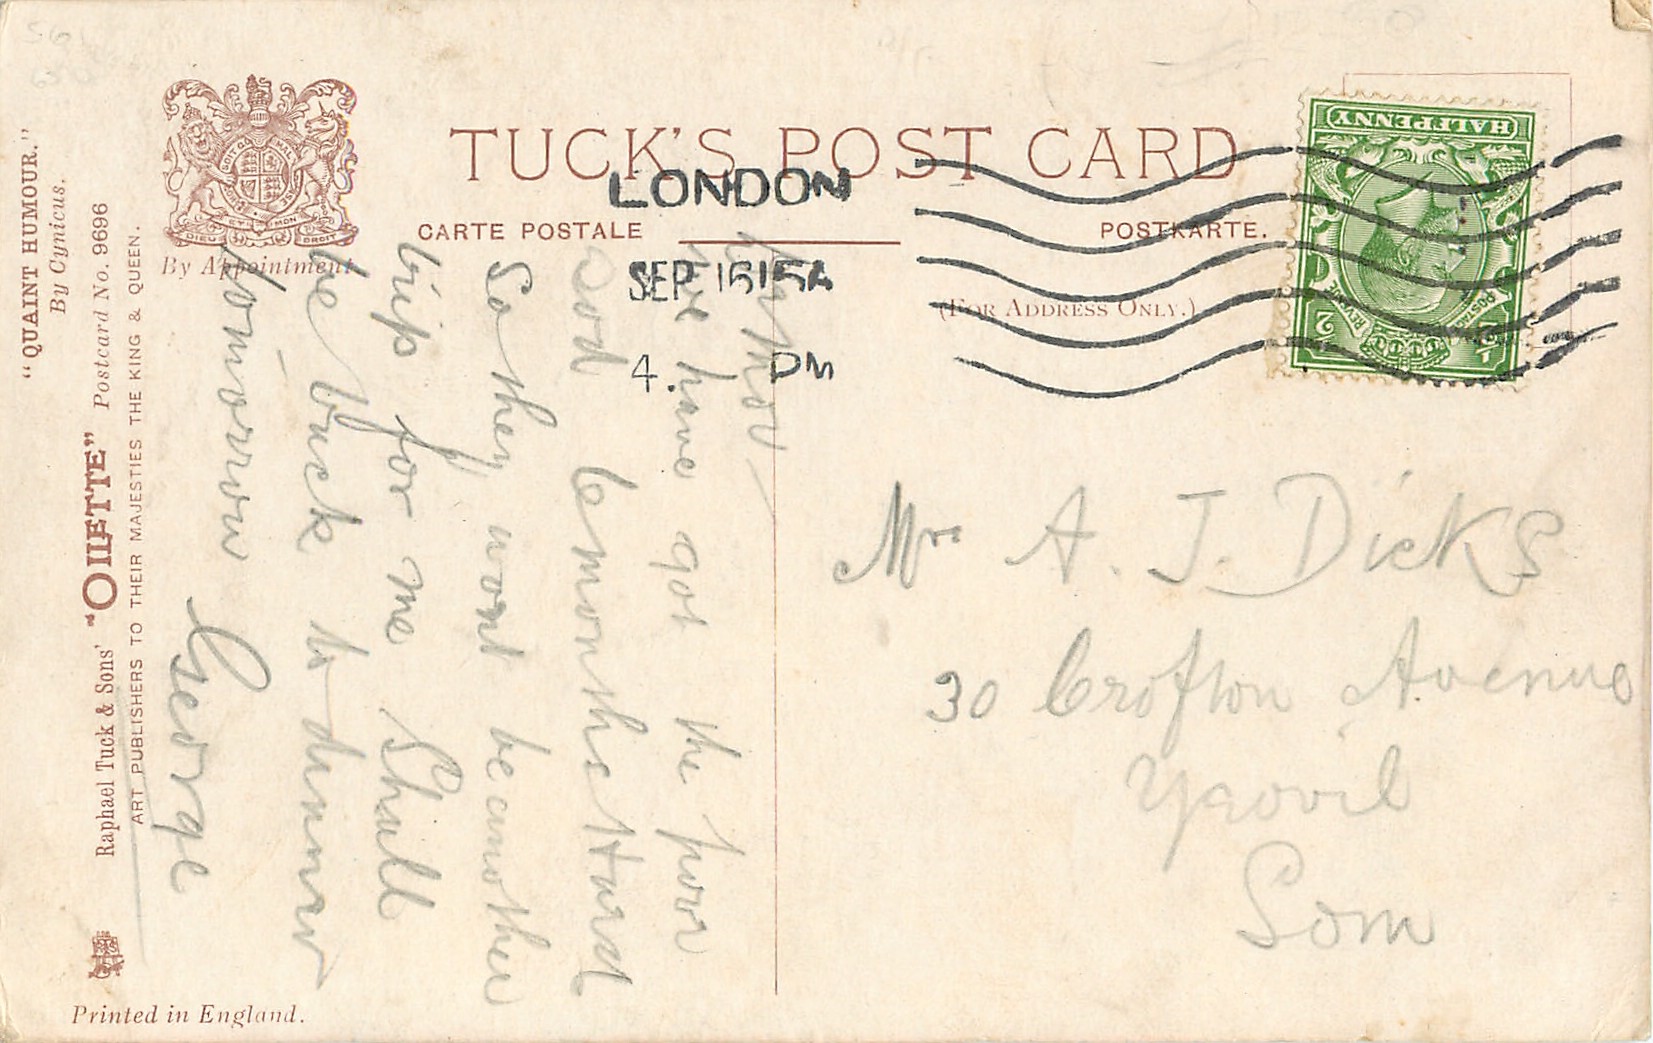 "QUAINT HUMOUR."
By Cynicus.
Raphael Tuck & Sons' "OILETTE" Postcard No. 9696
ART PUBLISHERS TO THEIR MAJESTIES THE KING & QUEEN.
DIEU ET MON DROIT
By Appointment
Printed in England.
TUCK'S POST CARD
CARTE POSTALE
POSTKARTE.
(FOR ADDRESS ONLY.)
LONDON
SEP 15 15
4. PM
HALFPENNY
POSTAGE
REVENUE
½ ½
we have got the poor
sod
So they wont be another
trip for me Shall
be back to dinner
tomorrow
George
Mrs A. J. Dicks
30 Crofton Avenue
Yeovil
Som